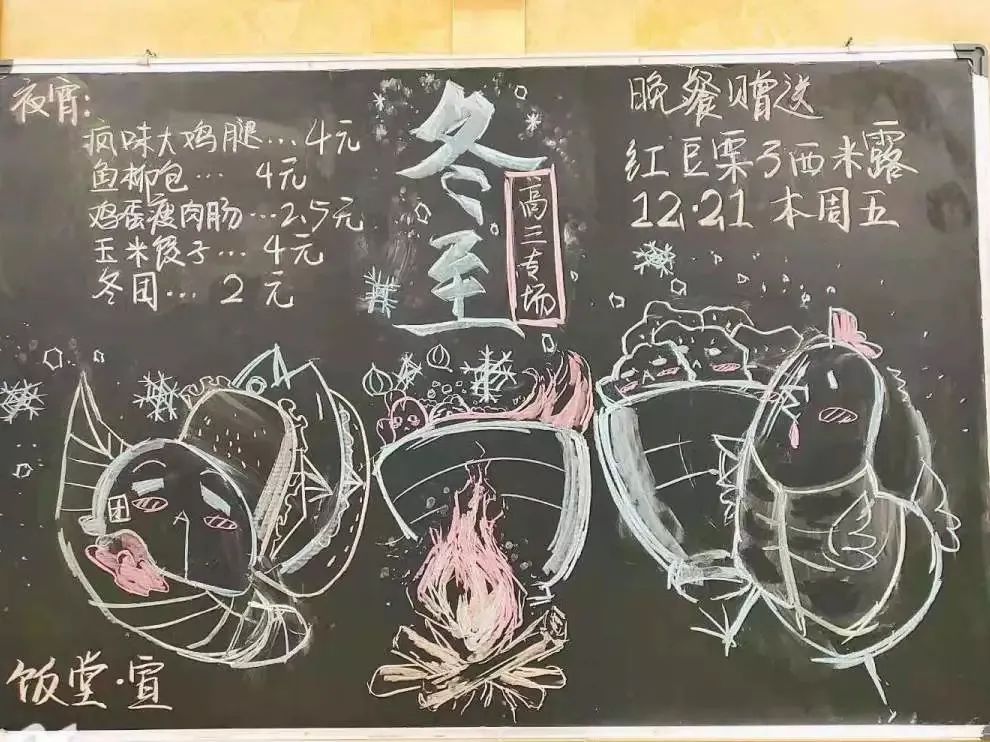 夜宵:
疯味大鸡腿...4元
鱼柳包... 4元
鸡蛋瘦肉肠...2.5元
玉米饺子...4元
冬团... 2 元
冬至
高三专场
晚餐赠送
红豆栗子西米露
12.21 本周五
团
饭堂·宣